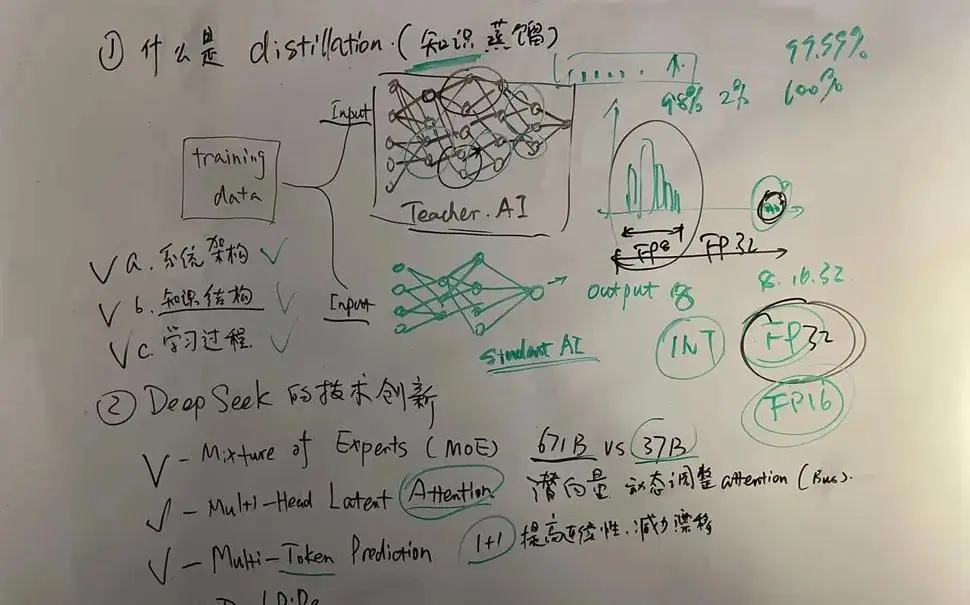 ① 什么是 distillation.(知识蒸馏)
99.59%
98% 2% 100%
Input
training data
Teacher.AI
FP8 FP32
a. 系统架构
b. 知识结构
c. 学习过程.
Input
output
8.16.32.
Student AI
INT
FP32
FP16
② DeepSeek 的技术创新
- Mixture of Experts (MoE) 671B vs 37B
- Multi-Head Latent Attention 潜向量 动态调整 attention (Bus).
- Multi-Token Prediction 1+1 提高连续性.减少漂移